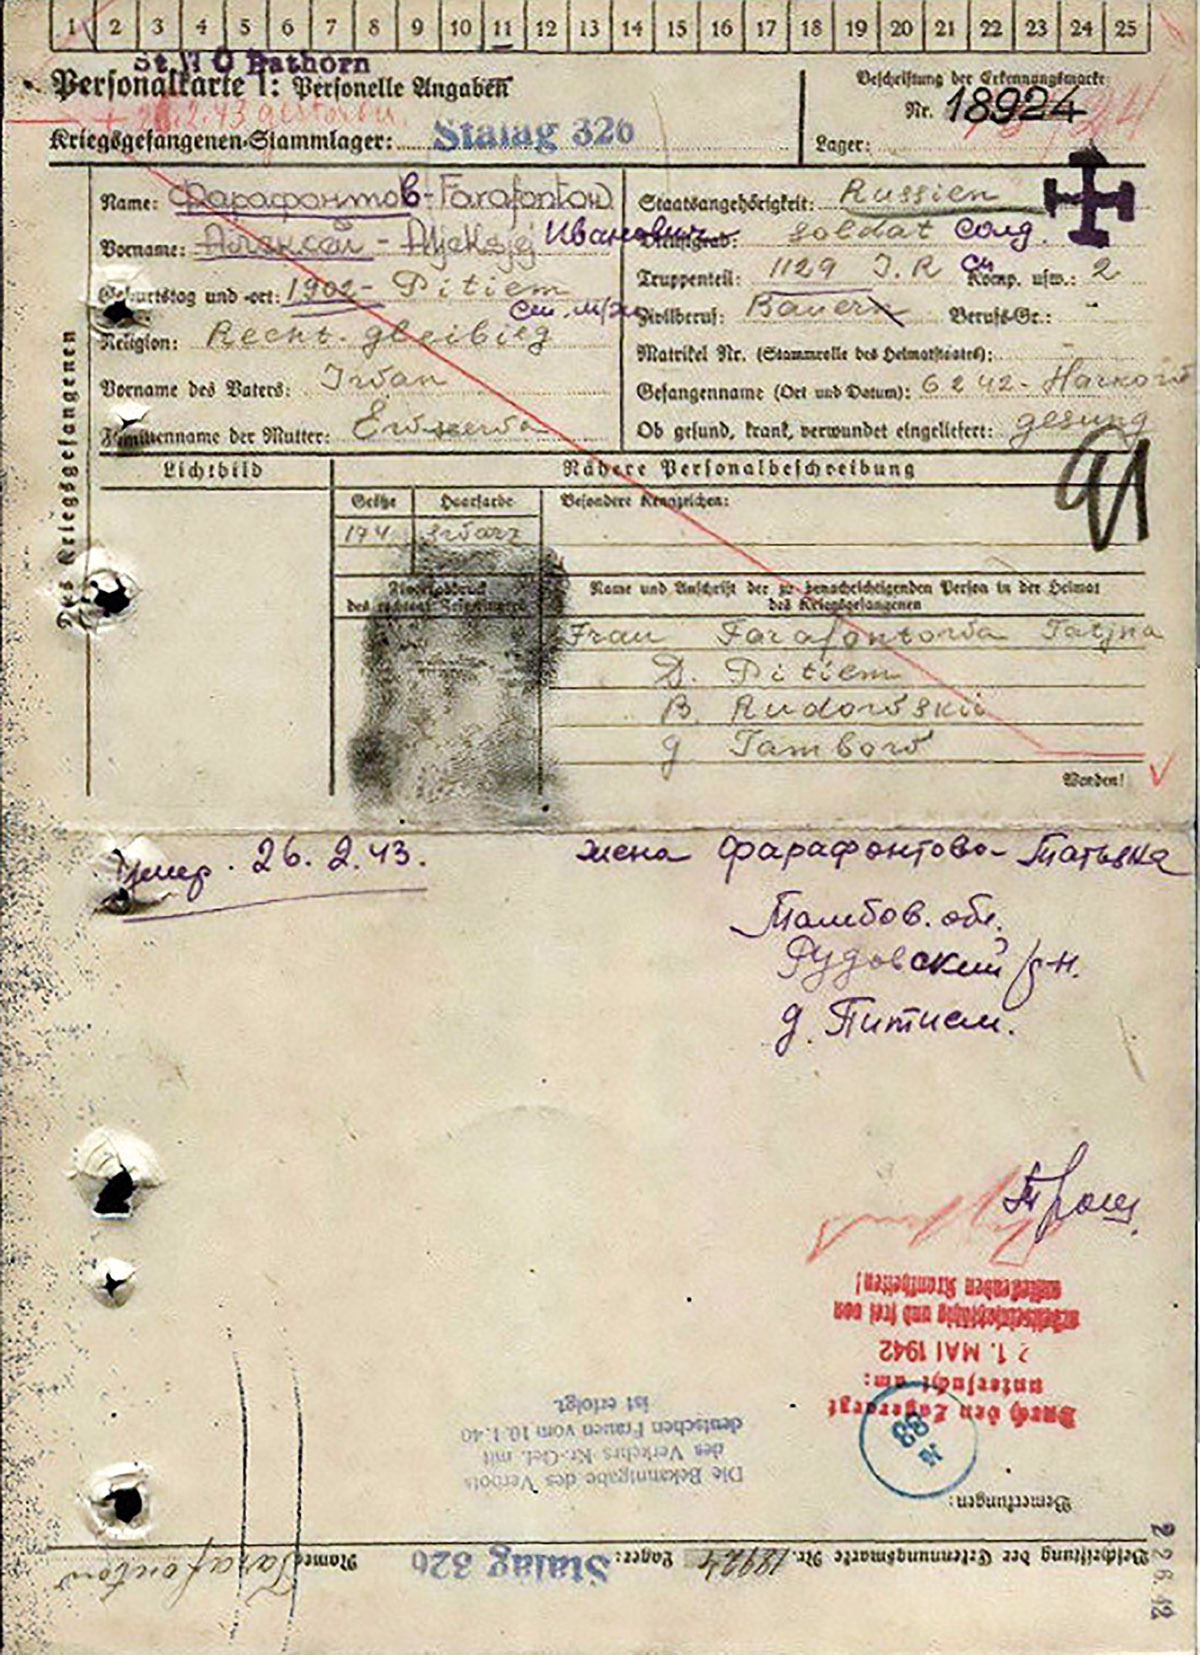 1 2 3 4 5 6 7 8 9 10 11 12 13 14 15 16 17 18 19 20 21 22 23 24 25
St. VI C Bathorn
Personalkarte I: Personelle Angaben
26.2.43 gestorben.
Kriegsgefangenen-Stammlager: Stalag 326
Beschriftung der Erkennungsmarke
Nr. 18924
Lager:
Des Kriegsgefangenen
Name: Фарафонтов - Farafontow
Vorname: Алексей - Aljeksjej Иванович
Geburtstag und -ort: 1902 - Pitiem
Religion: Recht. gleibieg
Vorname des Vaters: Iwan
Familienname der Mutter:
Staatsangehörigkeit: Russien
Dienstgrad: Soldat солд.
Truppenteil: 1129 I.R Komp. usw.: 2
Zivilberuf: Bauern Berufs-Gr.: -
Matrikel Nr. (Stammrolle des Heimatstaates): -
Gefangenname (Ort und Datum): 6 2 42 - Harkow
Ob gesund, krank, verwundet eingeliefert: gesung
Lichtbild
Nähere Personalbeschreibung
Größe Haarfarbe Besondere Kennzeichen:
174 swarz
Fingerabdruck
des rechten Zeigefingers
Name und Anschrift der zu benachrichtigenden Person in der Heimat
des Kriegsgefangenen
Frau Farafontowa Tatjna
D. Pitiem
B. Rudowskii
g Tambow
Wenden!
Умер. 26. 2. 43.
жена Фарафонтова Татьяна
Тамбов. обл.
Рудовский р-н.
д. Питием.
Beschriftung der Erkennungsmarke Nr. 18924 Lager: Stalag 326 Name: Farafontow
Bemerkungen:
N 38
Durch den Lagerarzt
untersucht am:
21. MAI 1942
arbeitseinsatzfähig und frei von
ansteckenden Krankheiten!
Die Bekanntgabe des Verbots
des Verkehrs Kr.-Gef. mit
deutschen Frauen vom 10.1.40
ist erfolgt.
22 6.42